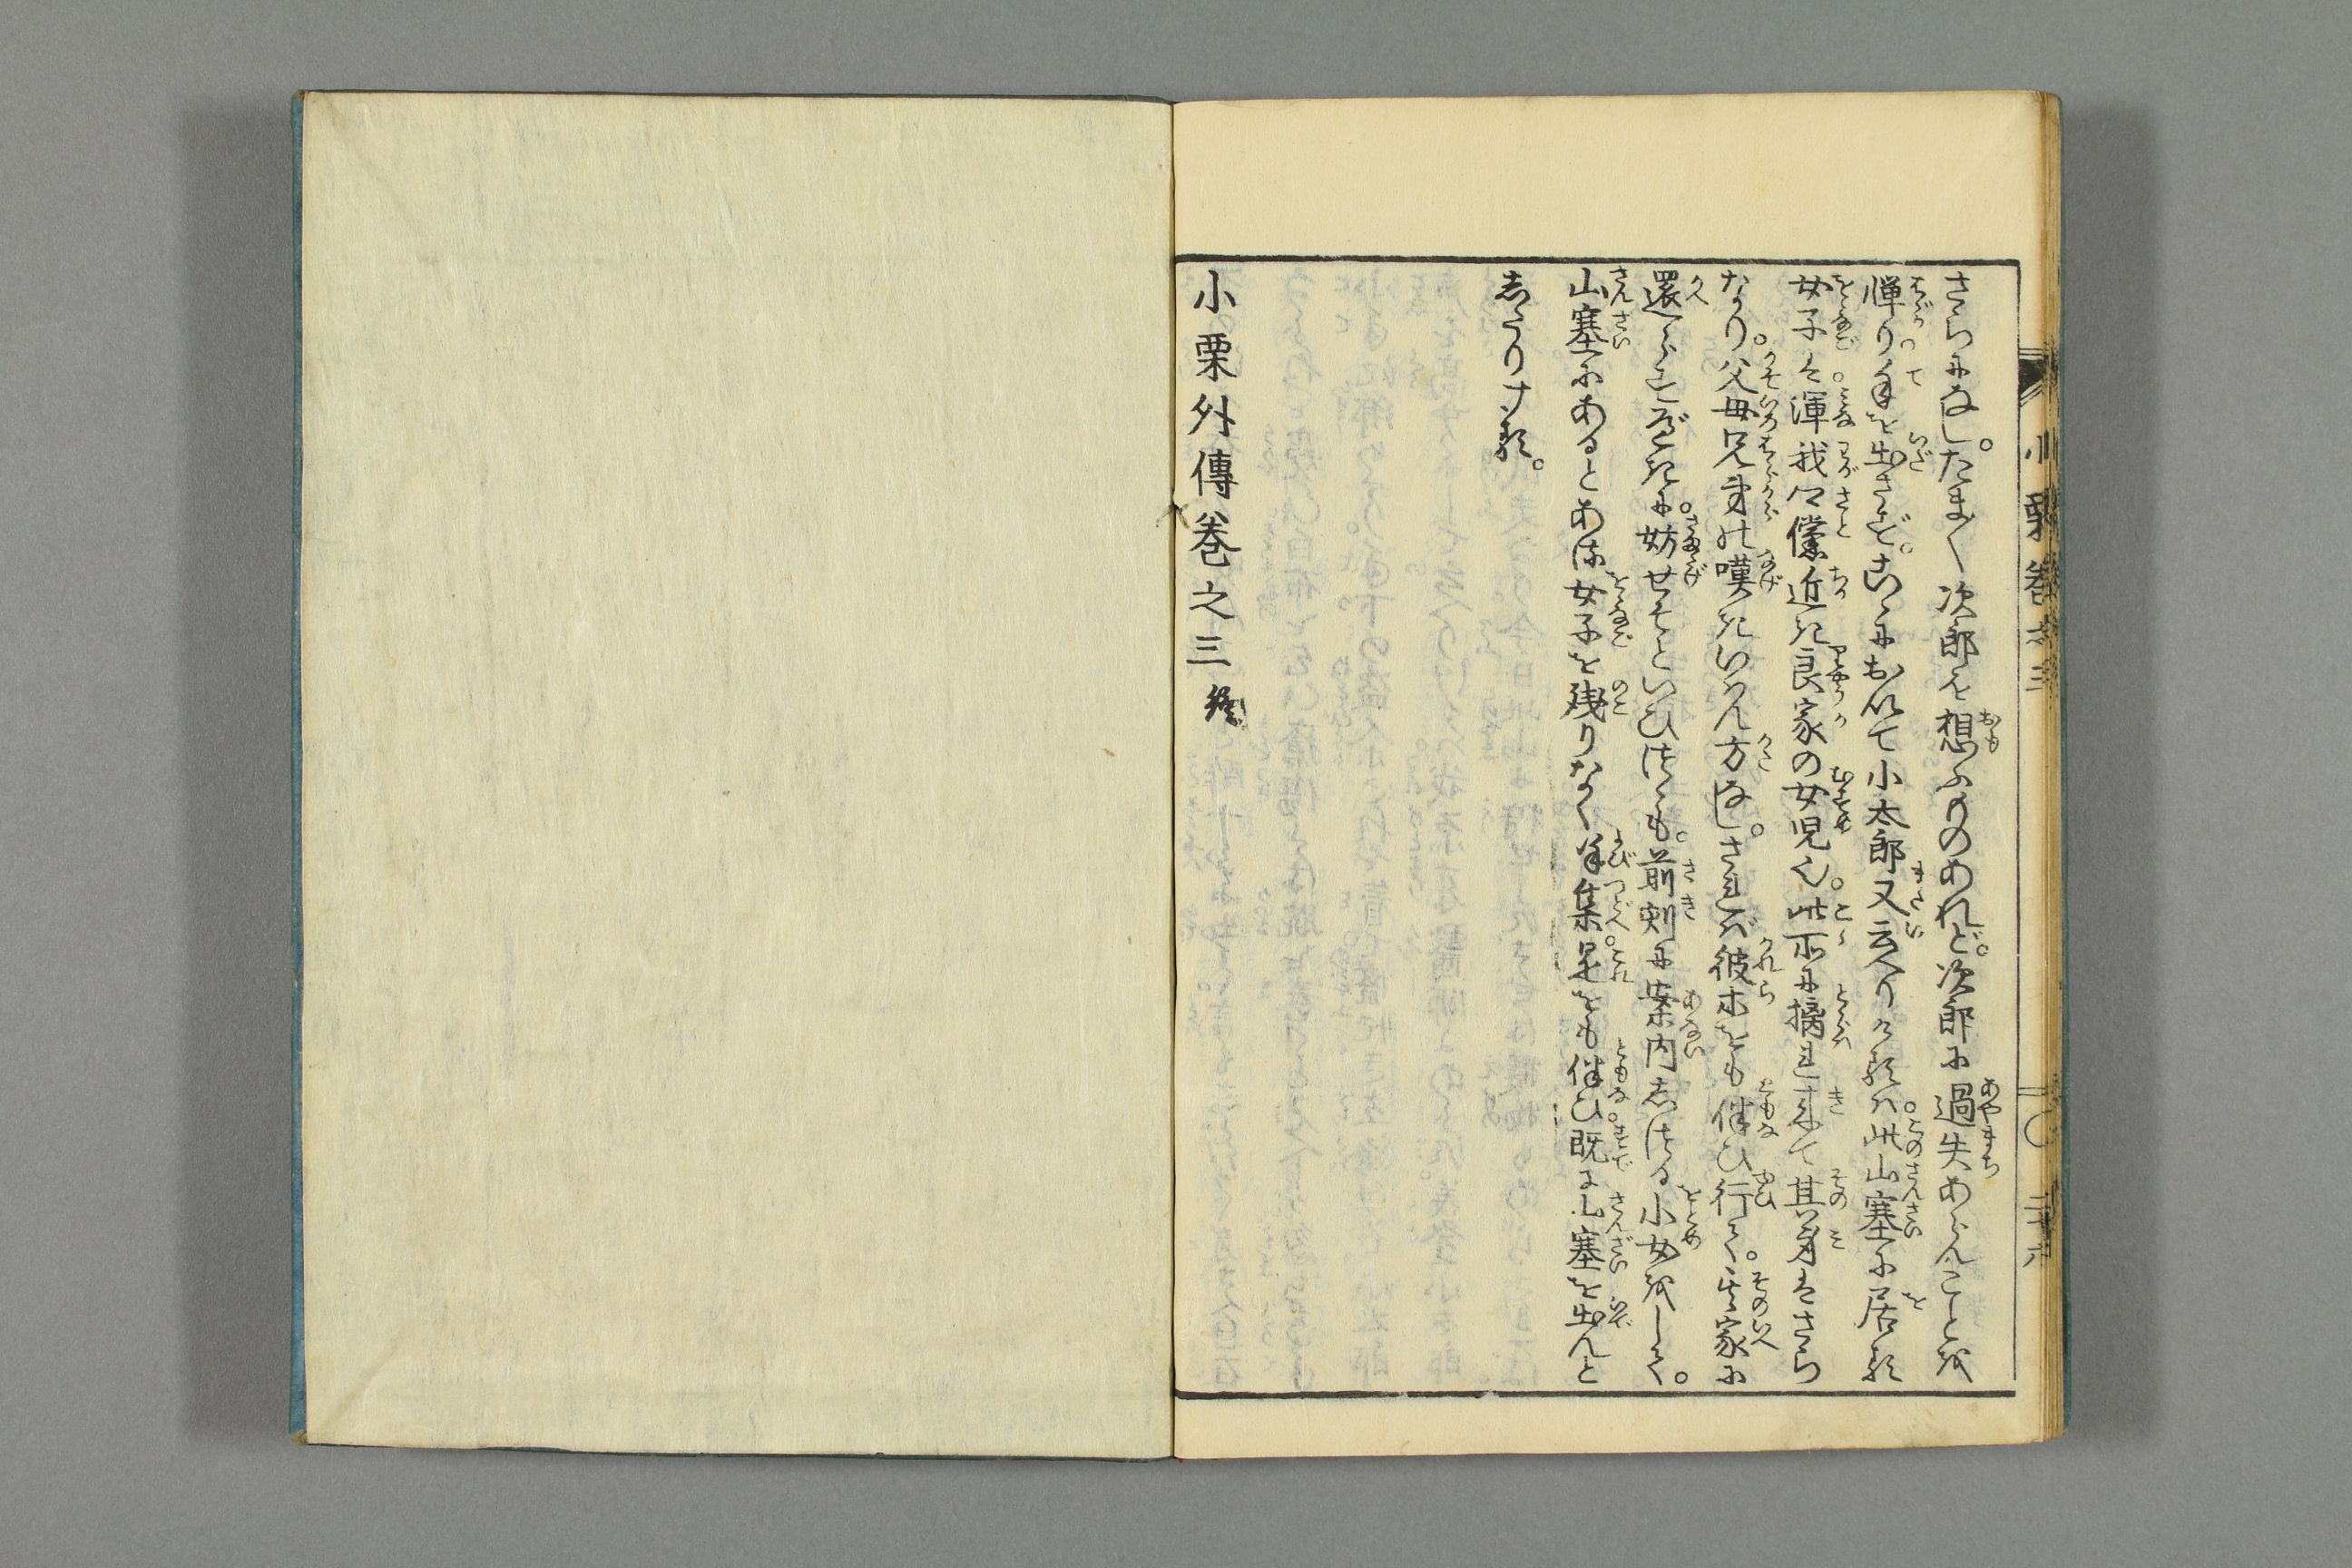 さらになし。たま〱次郎を想ふものあれど。次郎に過失あらんことを
憚りて手を出さず。こゝにおいて小太郎又云へりけるハ。此山塞に居る
女子ハ。渾我们儻近き良家の女児也。此所に擄れ来て其身はさら
なり。父母兄弟の嘆きいはん方なし。されバ彼ホをも伴ひ行て。其家に
還らすべきに。妨せそといひける も。前剣に案内しける小女をして。
山塞にあるとある女子を残りなく呼集。是をも伴ひ既に山塞を出んと
したりける。
小栗外傳巻之三 終
小栗巻之三
二十六